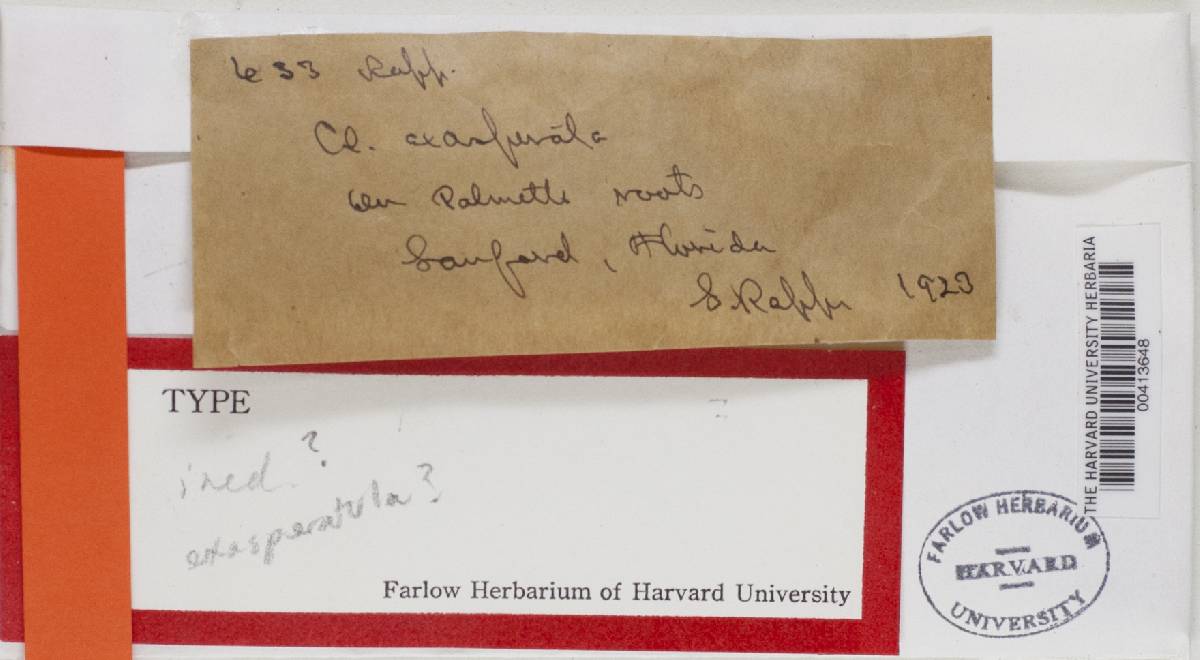 633 Rapp.
Cl. exasperata
On Palmetto roots
Sanford, Florida
S Rapp 1923
TYPE
ined?
exasperatula?
Farlow Herbarium of Harvard University
THE HARVARD UNIVERSITY HERBARIA
00413648
FARLOW HERBARIUM
HARVARD
UNIVERSITY